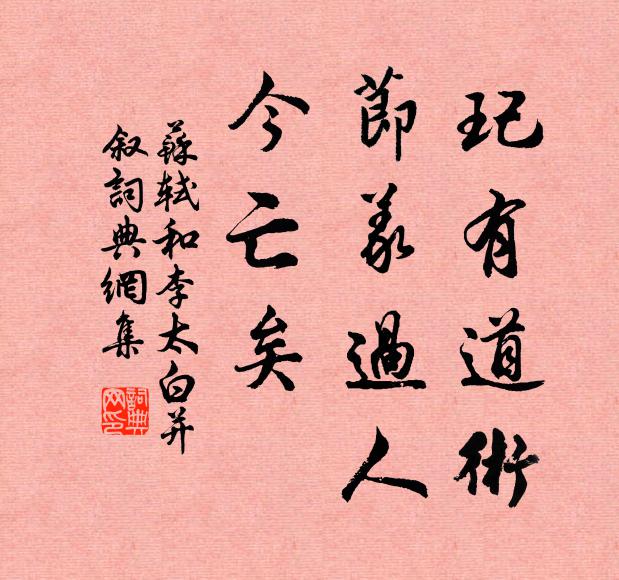 玘有道術
節義過人
今亡矣
蘇軾和李太白并
敘詞典網集
詞典网印